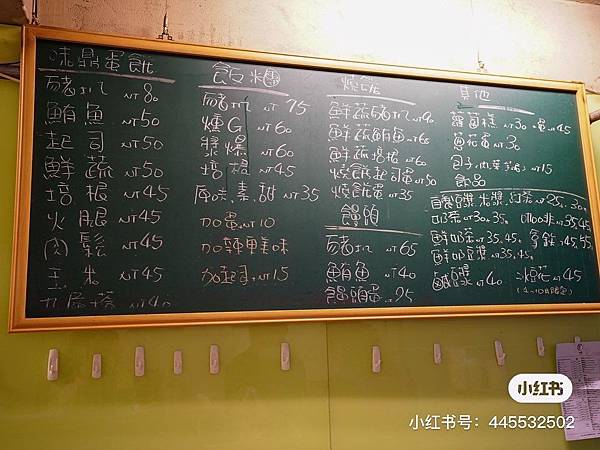 味鼎蛋餅
豬扒 NT 80
鮪魚 NT50
起司 NT50
鮮蔬 NT50
培根 NT45
火腿 NT45
肉鬆 NT45
玉米 NT45
NT40
飯糰
豬扒 NT 75
燻G NT60
漿爆 NT60
培根 NT45
原味.素.甜 NT35
加蛋 NT10
加辣更美味
加起司 NT15
燒餅
鮮蔬豬扒 NT90
鮮蔬鮪魚 NT60
鮮蔬培根 NT60
燒餅起司蛋 NT50
燒餅蛋 NT35
饅頭
豬扒 NT65
鮪魚 NT40
饅頭蛋 NT25
其他
蘿蔔糕 NT30 +蛋 NT45
蔥花蛋 NT30
包子 NT15
飲品
自製豆漿.米漿.紅茶 NT25.30
奶茶 NT30.35. 咖啡 35.45
鮮奶茶 NT35.45. 拿鐵 45.55
鮮奶豆漿 NT35.45
鹹豆漿 NT40 冰豆花 NT45
小红书
小红书号：445532502